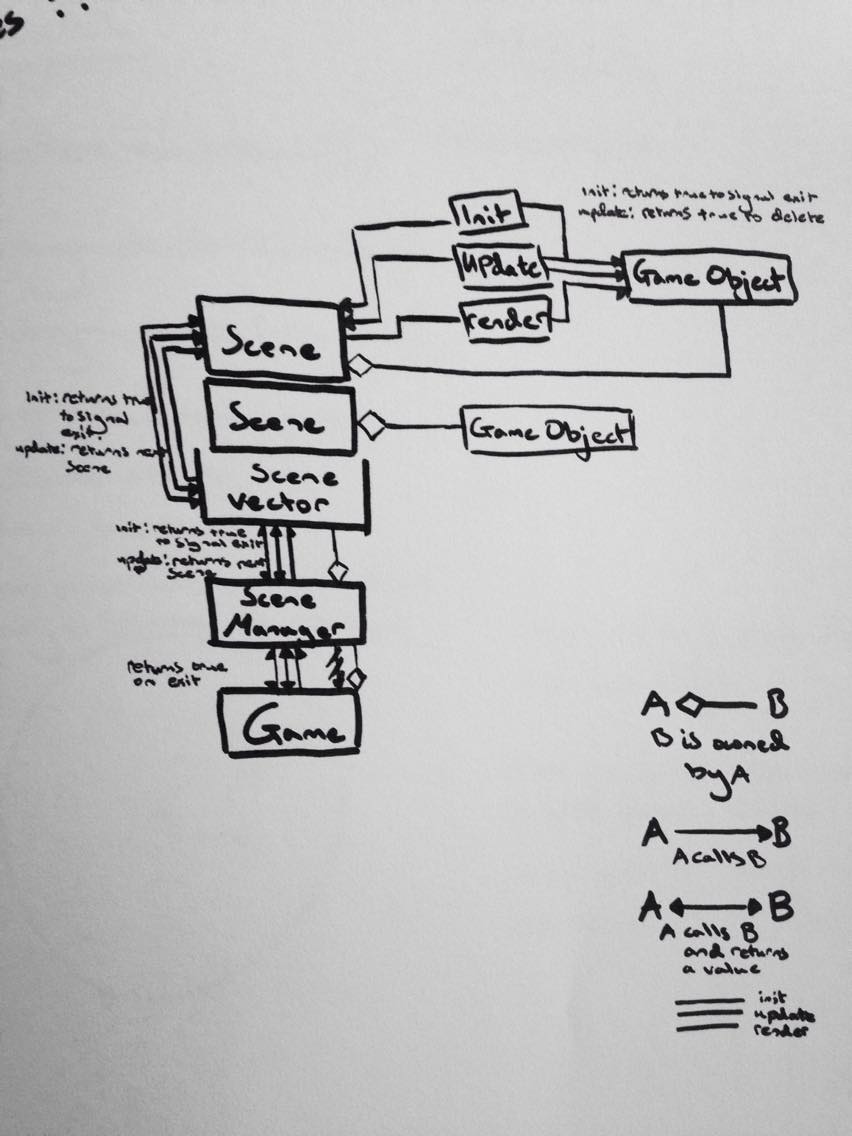 es :.
Init
init: returns true to signal exit
update: returns true to delete
update
Game Object
render
Scene
Scene
Game Object
init: returns true
to signal
exit.
update: returns next
Scene
Scene
vector
init: returns true
to signal exit
update: returns next
Scene
Scene
Manager
returns true
on exit
Game
A B
B is owned
by A
A B
A calls B
A B
A calls B
and returns
a value
init
update
render